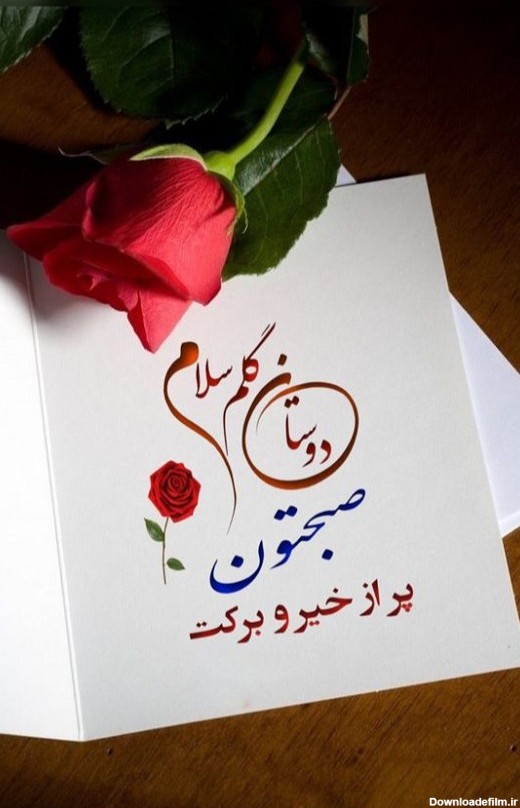 دوستان گلم سلام
صبحتون
پر از خیر و برکت
Downloadefilm.ir